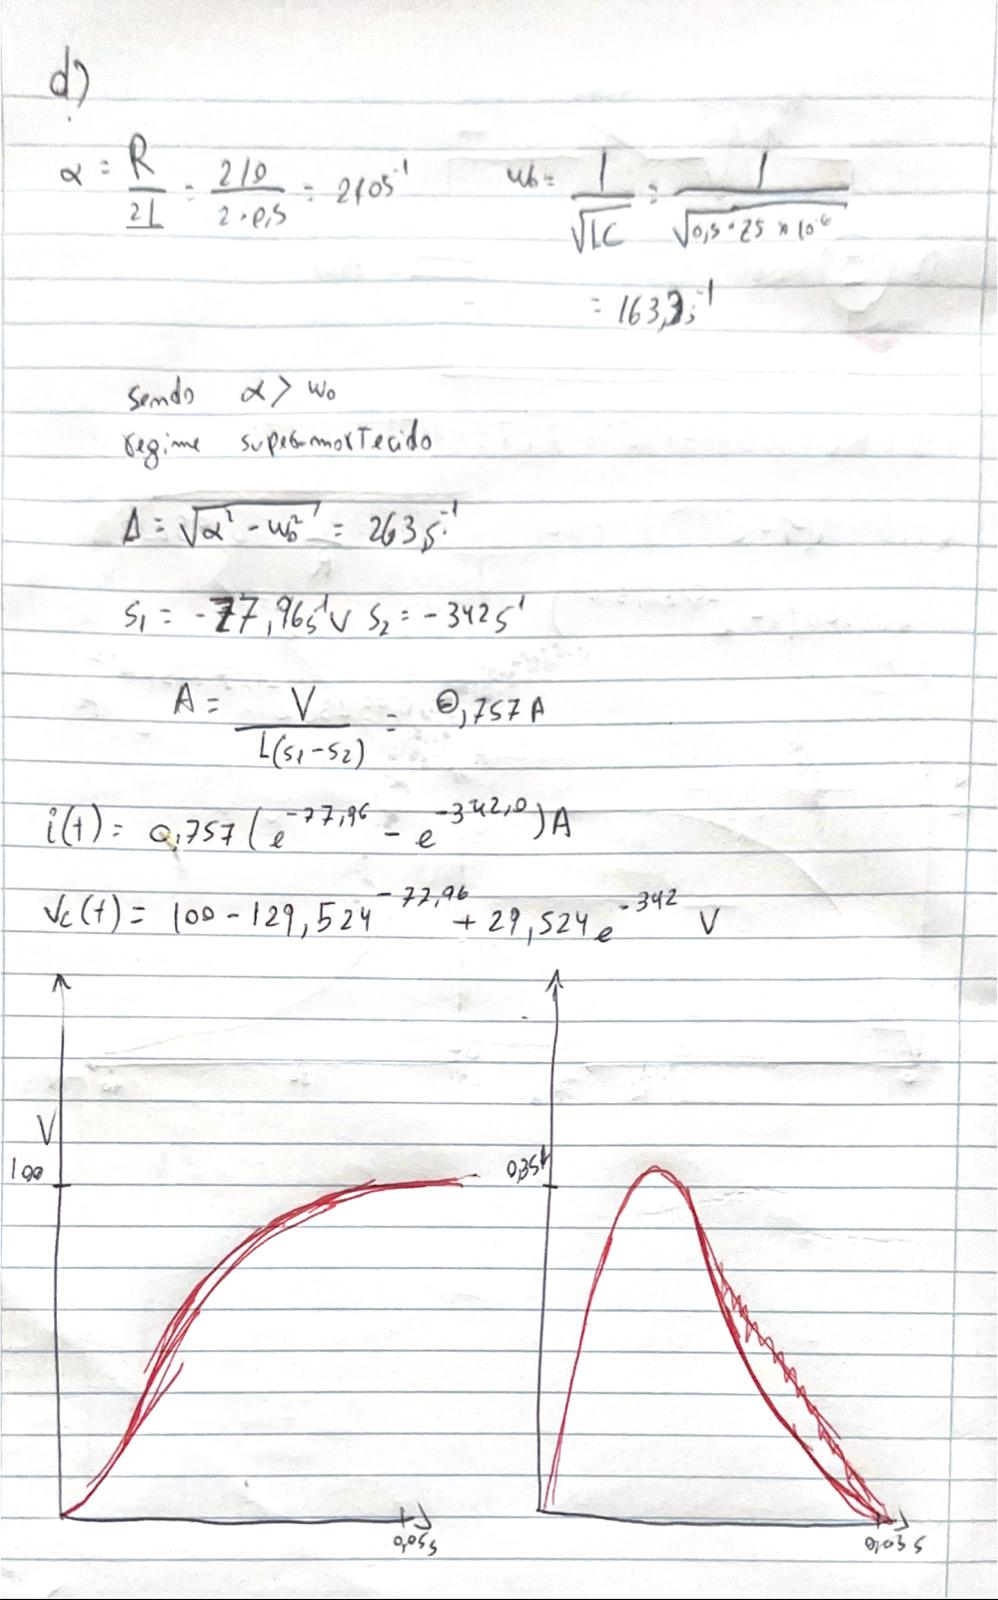 d)
α = R/2L = 210/2·0,5 = 210s⁻¹ ω₀ = 1/√LC = 1/√0,5·75×10⁻⁶
= 163,3s⁻¹
sendo α > ω₀
regime superamortecido
Δ = √α² - ω₀² = 263s⁻¹
s₁ = -77,96s⁻¹ ∨ s₂ = -342s⁻¹
A = V/L(s₁-s₂) = 0,757A
i(t) = 0,757(e⁻⁷⁷,⁹⁶ - e⁻³⁴²,⁰)A
Vc(t) = 100 - 129,524⁻⁷⁷,⁹⁶ + 29,524e⁻³⁴² V
V
100 0,35
0,05s 0,03s